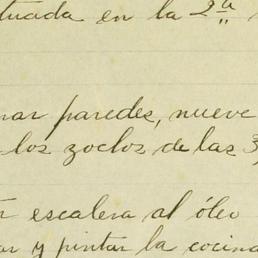 tuada en la 2ª
nar paredes, nueve
los zoclos de las 3
escalera al óleo
ar y pintar la cocina